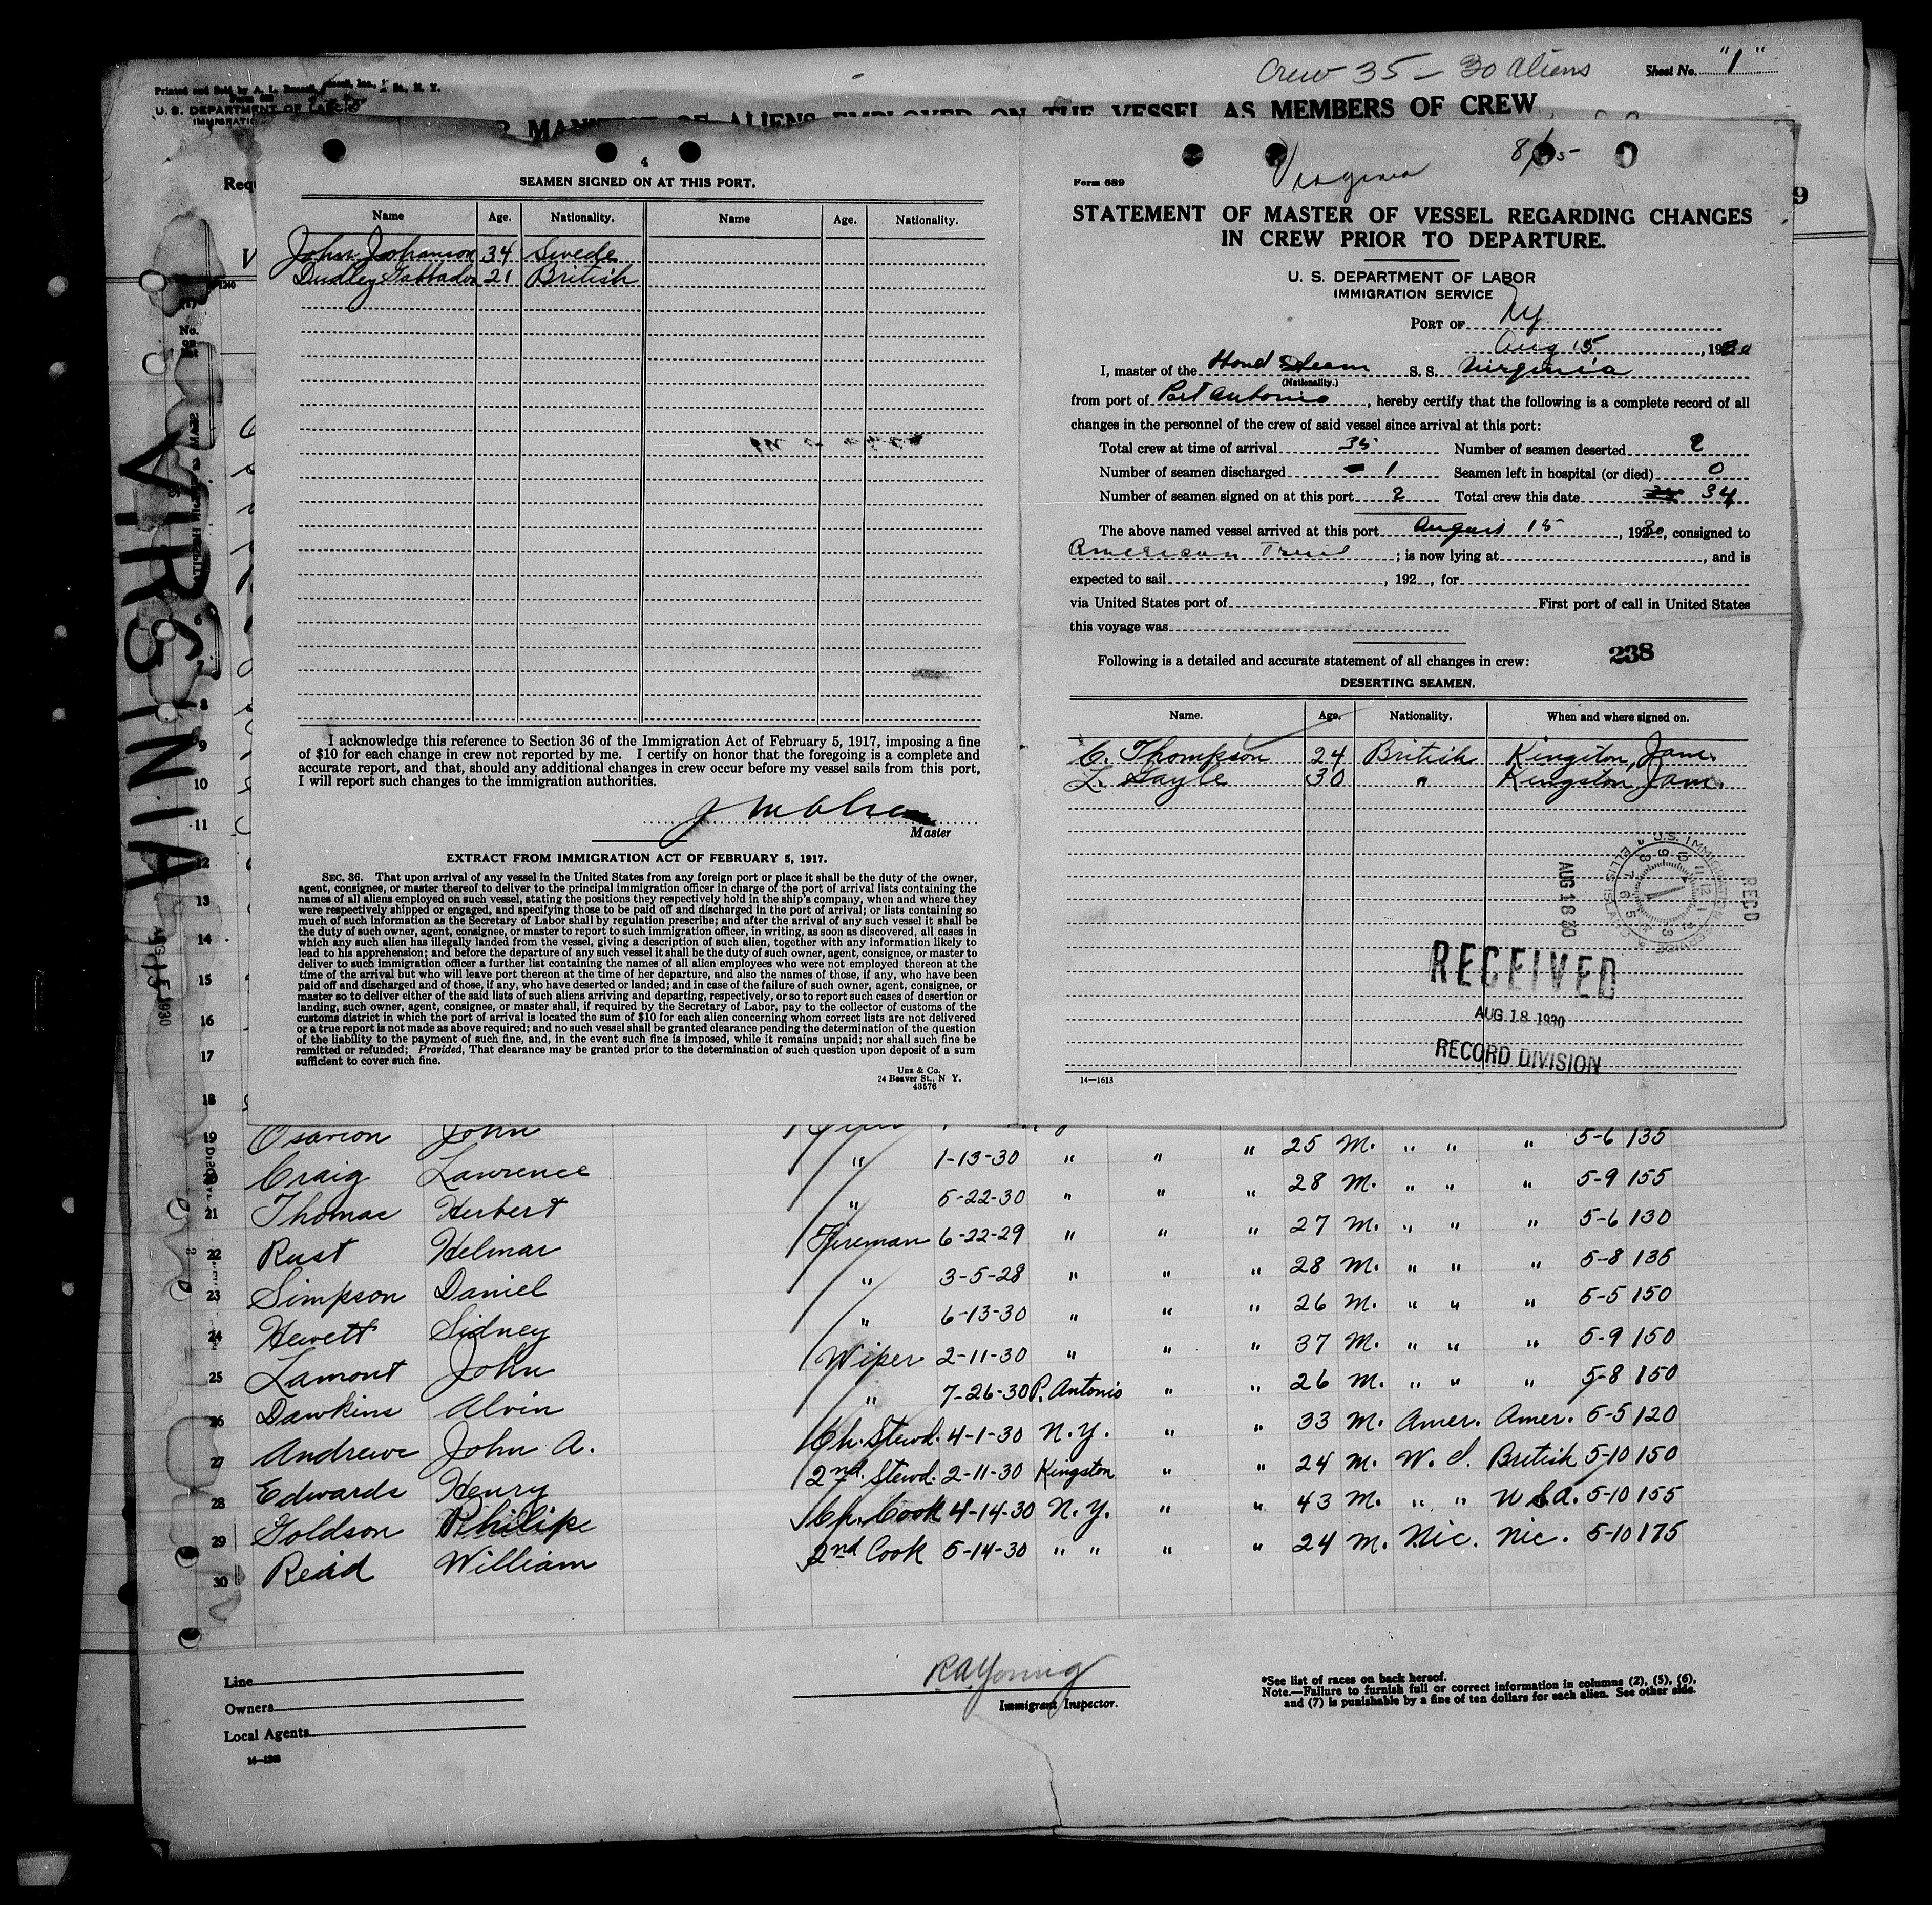 Crew 35 - 30 aliens
Sheet No. "1"
Printed and Sold by A. L.
U. S. DEPARTMENT OF LABOR
ALIENS EMPLOYED ON THE VESSEL AS MEMBERS OF CREW
VIRGINIA
AUG 15 1930
4
SEAMEN SIGNED ON AT THIS PORT.
Name Age. Nationality. Name Age. Nationality.
John Johanson 34 Swede
Dudley 21 British
I acknowledge this reference to Section 36 of the Immigration Act of February 5, 1917, imposing a fine
of $10 for each change in crew not reported by me. I certify on honor that the foregoing is a complete and
accurate report, and that, should any additional changes in crew occur before my vessel sails from this port,
I will report such changes to the immigration authorities.
Master
EXTRACT FROM IMMIGRATION ACT OF FEBRUARY 5, 1917.
SEC. 36. That upon arrival of any vessel in the United States from any foreign port or place it shall be the duty of the owner,
agent, consignee, or master thereof to deliver to the principal immigration officer in charge of the port of arrival lists containing the
names of all aliens employed on such vessel, stating the positions they respectively hold in the ship's company, when and where they
were respectively shipped or engaged, and specifying those to be paid off and discharged in the port of arrival; or lists containing so
much of such information as the Secretary of Labor shall by regulation prescribe; and after the arrival of any such vessel it shall be
the duty of such owner, agent, consignee, or master to report to such immigration officer, in writing, as soon as discovered, all cases in
which any such alien has illegally landed from the vessel, giving a description of such alien, together with any information likely to
lead to his apprehension; and before the departure of any such vessel it shall be the duty of such owner, agent, consignee, or master to
deliver to such immigration officer a further list containing the names of all alien employees who were not employed thereon at the
time of the arrival but who will leave port thereon at the time of her departure, and also the names of those, if any, who have been
paid off and discharged and of those, if any, who have deserted or landed; and in case of the failure of such owner, agent, consignee, or
master so to deliver either of the said lists of such aliens arriving and departing, respectively, or so to report such cases of desertion or
landing, such owner, agent, consignee, or master shall, if required by the Secretary of Labor, pay to the collector of customs of the
customs district in which the port of arrival is located the sum of $10 for each alien concerning whom correct lists are not delivered
or a true report is not made as above required; and no such vessel shall be granted clearance pending the determination of the question
of the liability to the payment of such fine, and, in the event such fine is imposed, while it remains unpaid; nor shall such fine be
remitted or refunded; Provided, That clearance may be granted prior to the determination of such question upon deposit of a sum
sufficient to cover such fine.
Unz & Co.
24 Beaver St., N Y.
43576
Virginia
Form 689
STATEMENT OF MASTER OF VESSEL REGARDING CHANGES
IN CREW PRIOR TO DEPARTURE.
U. S. DEPARTMENT OF LABOR
IMMIGRATION SERVICE
PORT OF NY
Aug 15, 1930
I, master of the Hond S. S. Virginia
(Nationality.)
from port of Port Antonio, hereby certify that the following is a complete record of all
changes in the personnel of the crew of said vessel since arrival at this port:
Total crew at time of arrival 35 Number of seamen deserted 2
Number of seamen discharged 1 Seamen left in hospital (or died) 0
Number of seamen signed on at this port 2 Total crew this date 34
The above named vessel arrived at this port August 15, 1930, consigned to
American Fruit; is now lying at , and is
expected to sail , 192 , for
via United States port of First port of call in United States
this voyage was
238
Following is a detailed and accurate statement of all changes in crew:
DESERTING SEAMEN.
Name. Age. Nationality. When and where signed on.
C. Thompson 24 British Kingston, Jam.
L. Gayle 30 " Kingston Jam.
U.S. IMMIGRATION SERVICE ELLIS ISLAND
REC'D
AUG 18 30
RECEIVED
AUG 18 1930
RECORD DIVISION
14—1613
19 Osarion John 25 M. " " " 5-6 135
20 Craig Lawrence " 1-13-30 " " " 28 M. " " " 5-9 155
21 Thomas Herbert " 5-22-30 " " " 27 M. " " " 5-6 130
22 Rust Helmar Fireman 6-22-29 " " " 28 M. " " " 5-8 135
23 Simpson Daniel " 3-5-28 " " " 26 M. " " " 5-5 150
24 Hewett Sidney " 6-13-30 " " " 37 M. " " " 5-9 150
25 Lamont John Wiper 2-11-30 " " " 26 M. " " " 5-8 150
26 Dawkins Alvin " 7-26-30 P. Antonio " " 33 M. Amer. Amer. 5-5 120
27 Andrews John A. Ch. Stewd. 4-1-30 N.Y. " " 24 M. W. I. British 5-10 150
28 Edwards Henry 2nd. Stewd. 2-11-30 Kingston " " 43 M. " " U.S.A. 5-10 155
29 Goldson Philipe Ch. Cook 4-14-30 N.Y. " " 24 M. Nic. Nic. 5-10 175
30 Reid William 2nd Cook 5-14-30 " " " "
Line
Owners
Local Agents
R A Young
Immigrant Inspector.
*See list of races on back hereof.
Note.—Failure to furnish full or correct information in columns (2), (5), (6),
and (7) is punishable by a fine of ten dollars for each alien. See other side.